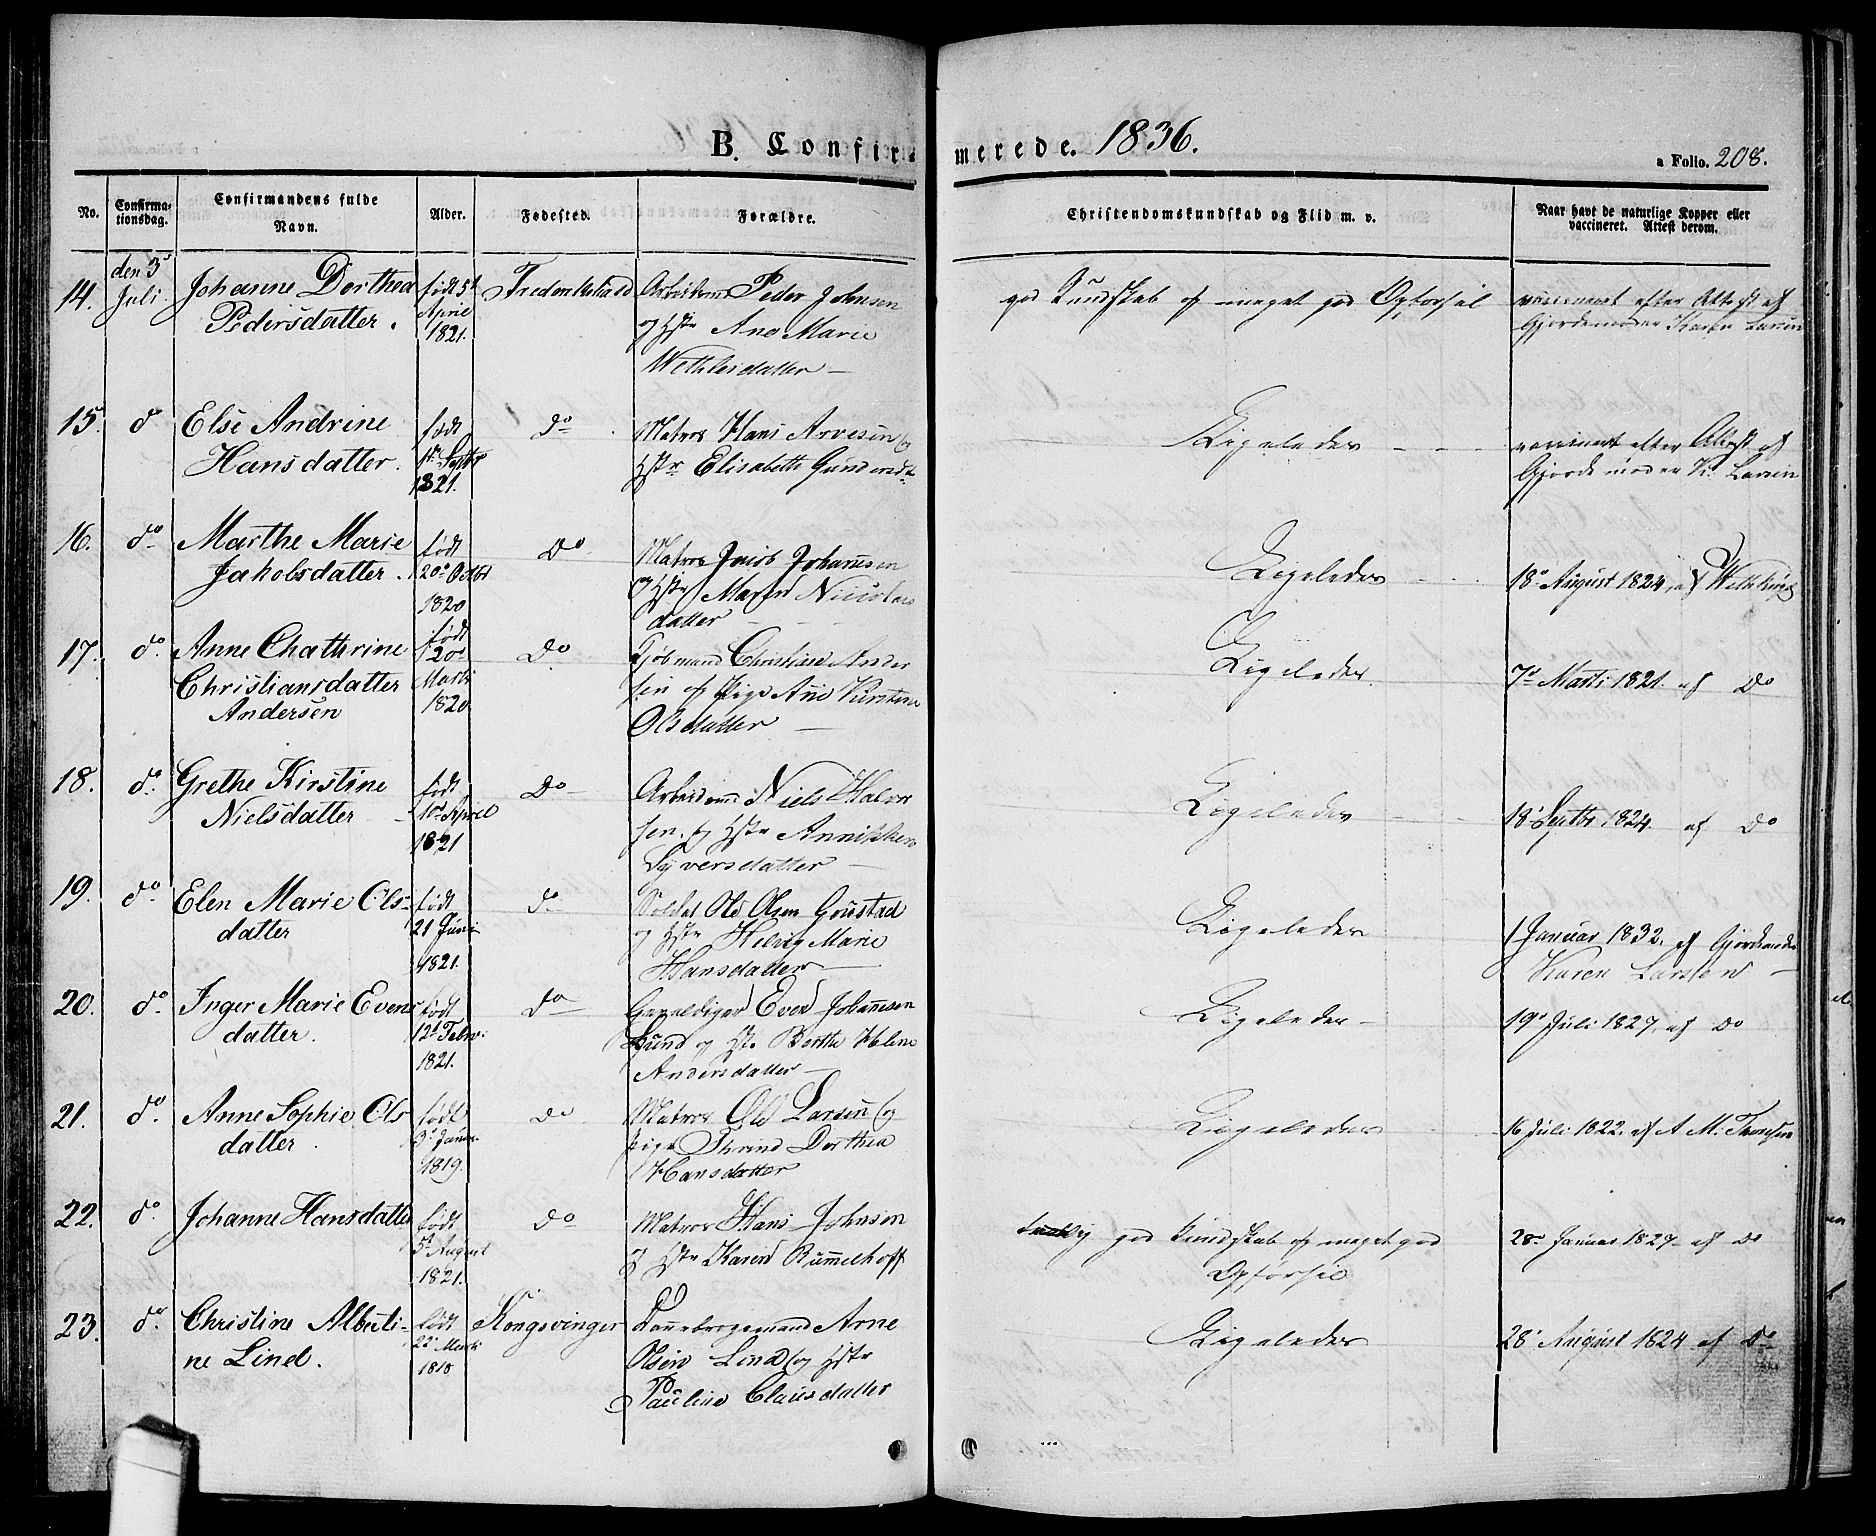 B. Confir-
merede. 1836.
a Folio. 208.
No.
Confirma-
tionsdag.
Confirmandens fulde
Navn.
Alder.
Fødested.
Forældre.
Christendomskundskab og Flid m. v.
Naar havt de naturlige Kopper eller
vaccineret. Attest derom.
14.
den 3
Juli
Johanne Dorthea
Pedersdatter.
født
April
1821.
Frederikstad
Peder Johnsen
og Hstr Ane Marie
god Kundskab og meget god Opførsel
vaccineret efter Attest af
Gjordemoder Karen Larsen
15.
do
Else Andrine
Hansdatter.
født
1 Septbr
1821.
Do
Matros Hans Arvesen og
Hstr Elisabeth
Ligeledes
vaccineret efter Attest af
Gjordemoder K. Larsen
16.
do
Marthe Marie
Jakobsdatter.
født
20 Octbr
1820
Do
Matros Jacob Johannesen
og Hstr Maren
datter
Ligeledes
18 August 1824, af
17.
do
Anne Chathrine
Christiansdatter
Andersen
født
20
Marts
1820
Do
Christian Ander
sen og Pige Ane
Olsdatter
Ligeledes
7 Marts 1821. af Do
18.
do
Grethe Kirstine
Nielsdatter
født
10 April
1821
Do
Niels Halvor
sen og Hstr Annikken
Syversdatter
Ligeledes
18 Septbr 1824 af Do
19.
do
Elen Marie Ols-
datter
født
21 Juni
1821.
do
Soldat Ole Olsen
og Hstr Helvig Marie
Hansdatter
Ligeledes
1 Januar 1832. af Gjordemoder
Karen Larsen
20.
do
Inger Marie Evens
datter.
født
12 Febr.
1821.
Do
Even Johannesen
Lund og Hstr Berthe Helene
Andersdatter
Ligeledes
19 Juli 1827, af Do
21.
do
Anne Sophie Ols
datter.
født
3
1819.
Do
Matros Ole Larsen og
pige Thrine Dorthea
Hansdatter
Ligeledes
16 Juli 1822. af A M. Thomsen
22.
do
Johanne Hansdatter
født
5 August
1821.
Do
Matros Hans Johnsen
og Hstr Karen Rummelhoff
god Kundskab og meget god
Opførsel
28 Januar 1827 af Do
23.
do
Christine Alberti-
ne Lind.
født
22 Marts
Kongsvinger
Dannebrogsmand Arne
Olsen Lind og Hstr
Pauline Clausdatter
Ligeledes
28 August 1824 af Do